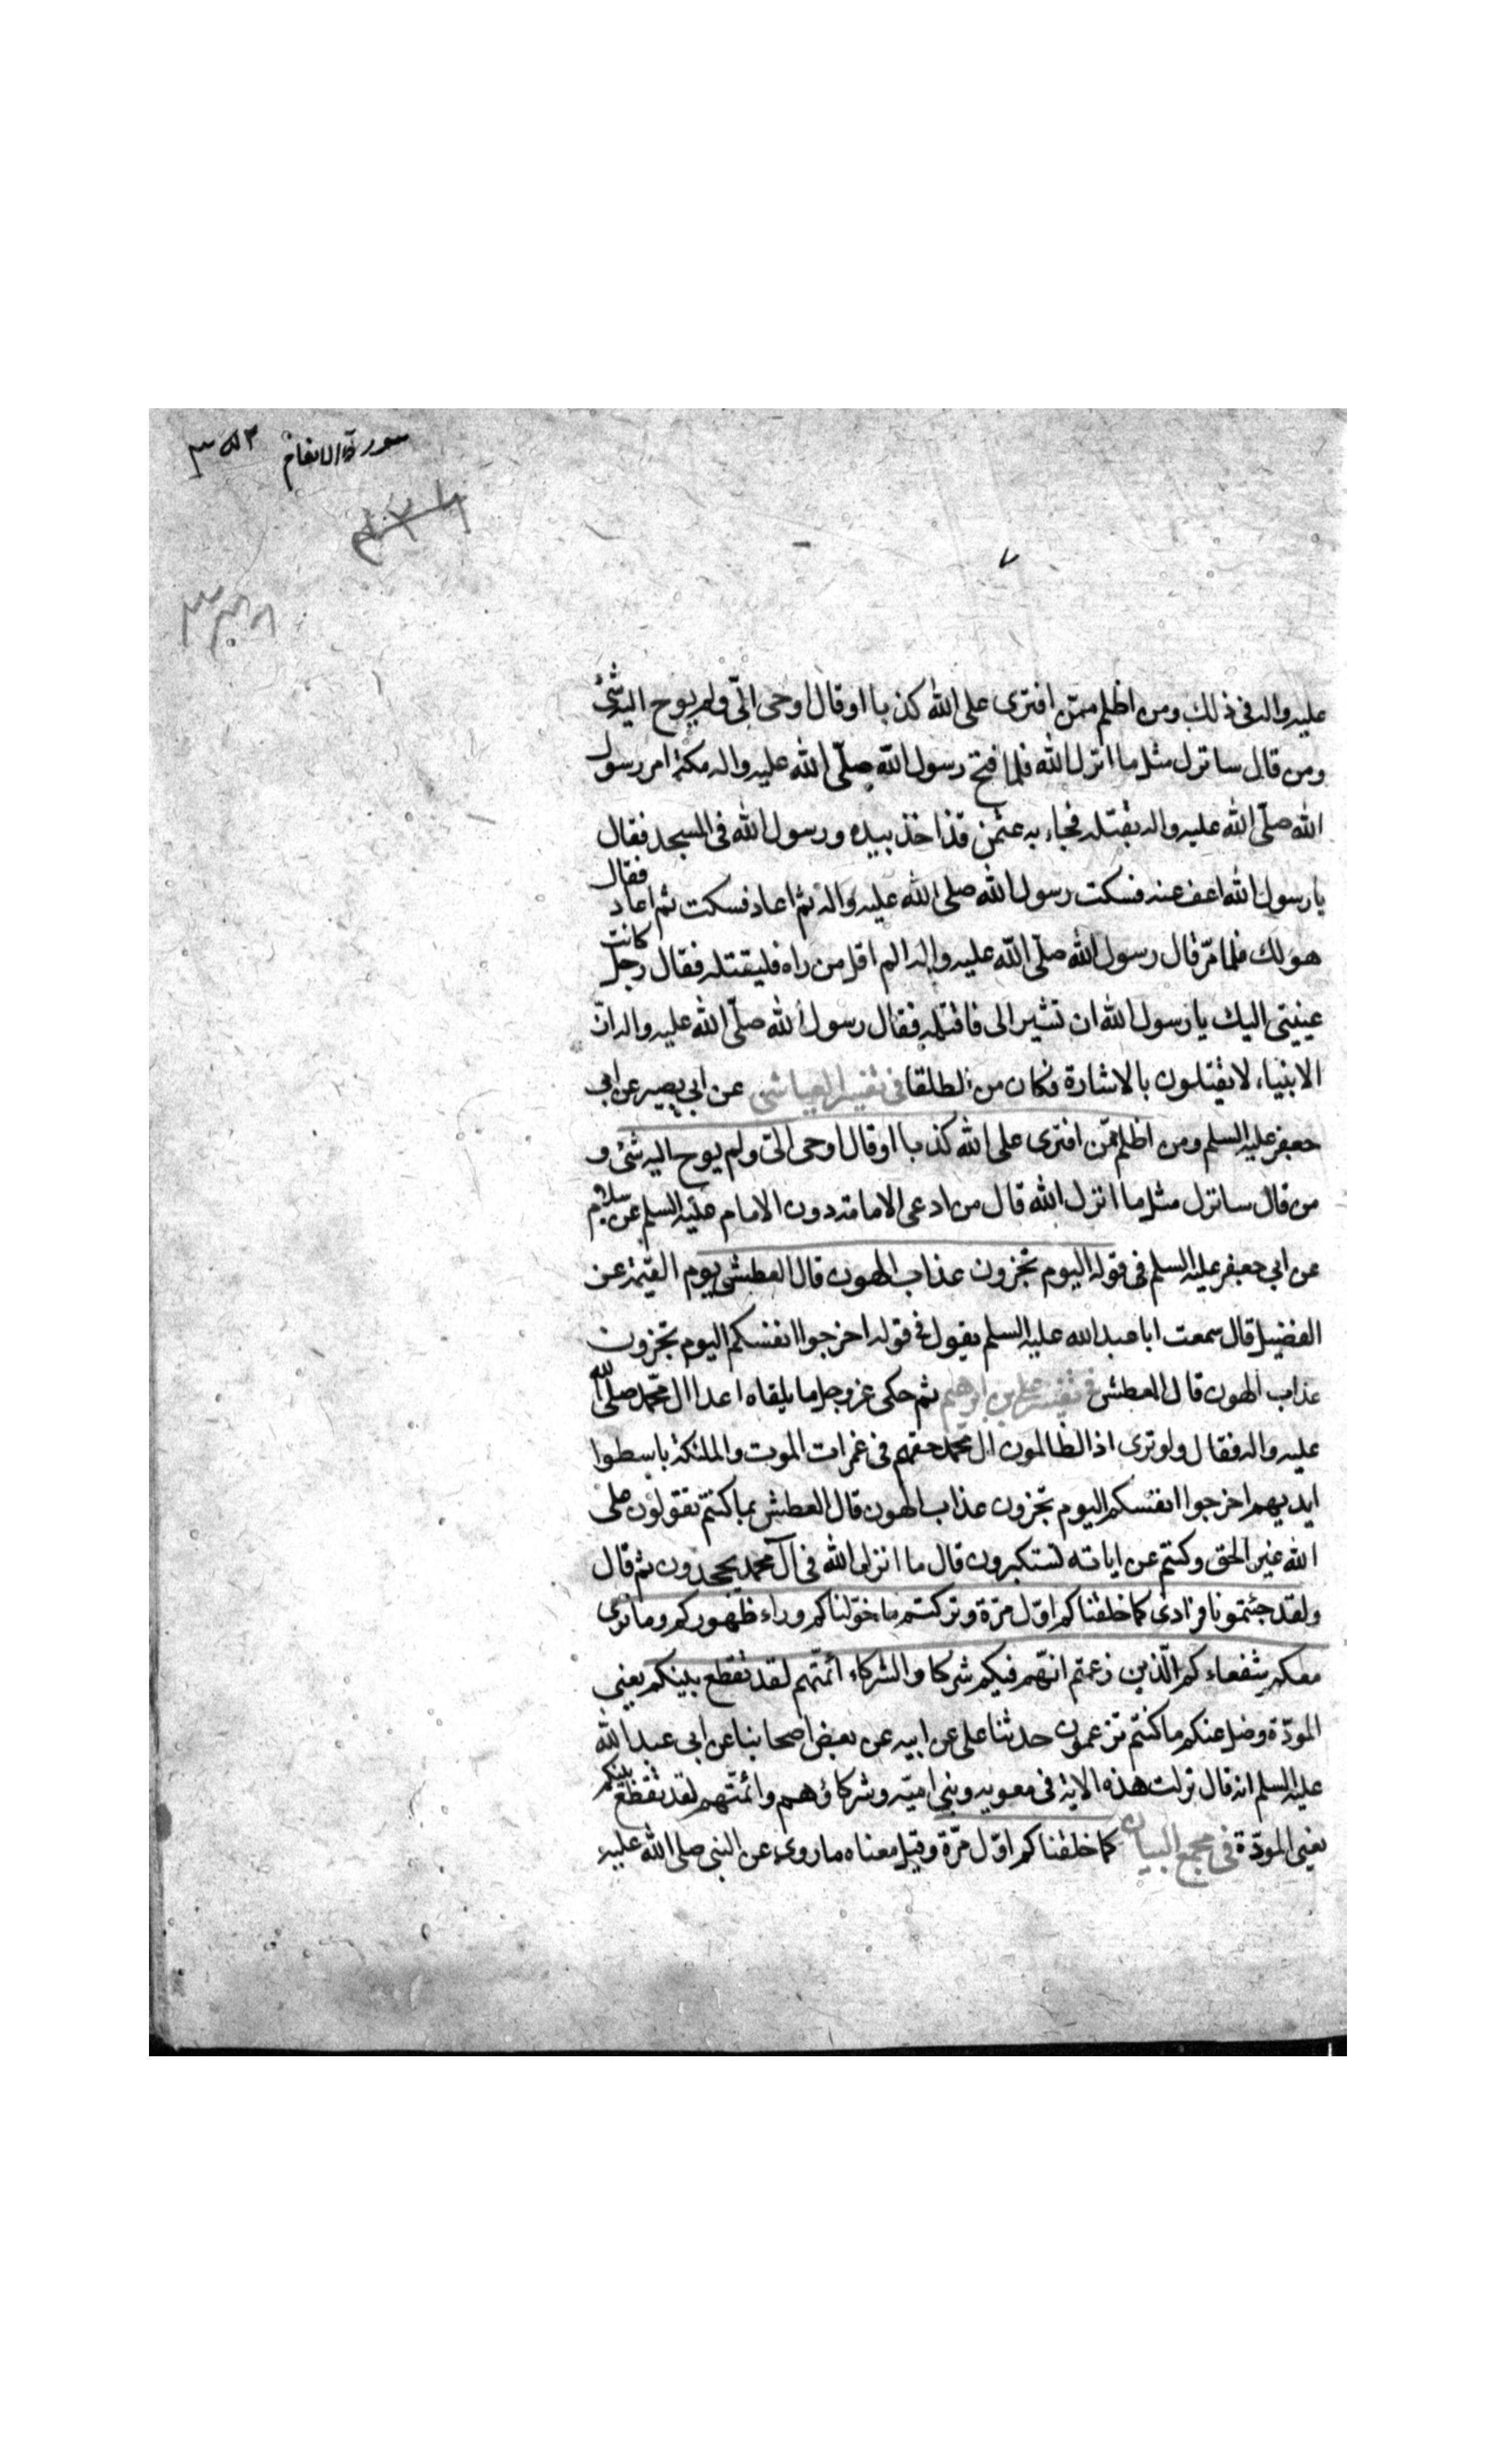 سورة الانعام ٣٥٢
٧
عليه واله فى ذلك ومن اظلم ممّن افترى على الله كذبا او قال اوحى الىّ ولم يوح اليه شئ
ومن قال سانزل مثل ما انزل الله فلما فتح رسول الله صلّى الله عليه واله مكة امر رسول
الله صلّى الله عليه واله بقتله فجاء به عثمن قد اخذ بيده ورسول الله فى المسجد فقال
يا رسول الله اعف عنه فسكت رسول الله صلى الله عليه واله ثم اعاد فسكت ثم اعاد فقال
هو لك فلما مرّ قال رسول الله صلّى الله عليه واله الم اقل من راه فليقتله فقال رجل كانت
عينيتى اليك يا رسول الله ان تشير الى فاقتله فقال رسول الله صلّى الله عليه واله انّ
الانبياء لا يقتلون بالاشارة فكان من الطلقا فى تفسير العياشى عن ابى بصير عن ابى
جعفر عليه السلم ومن اظلم ممّن افترى على الله كذبا او قال اوحى الىّ ولم يوح اليه شئ و
من قال سانزل مثل ما انزل الله قال من ادعى الامامة دون الامام عليه السلم عن سلام
عن ابى جعفر عليه السلم فى قوله اليوم تجزون عذاب الهون قال العطش يوم القيمة عن
الفضيل قال سمعت ابا عبد الله عليه السلم يقول فى قوله اخرجوا انفسكم اليوم تجزون
عذاب الهون قال العطش فى تفسير على بن ابرهيم ثم حكى عز وجل ما يلقاه اعدا ال محمّد صلى الله
عليه واله فقال ولو ترى اذ الظالمون ال محمد حقهم فى غمرات الموت والملئكة باسطوا
ايديهم اخرجوا انفسكم اليوم تجزون عذاب الهون قال العطش بما كنتم تقولون على
الله غير الحق وكنتم عن اياته تستكبرون قال ما انزل الله فى آل محمد يجحدون ثم قال
ولقد جئتمونا فرادى كما خلقناكم اوّل مرّة وتركتم ما خوّلناكم وراء ظهوركم وما نرى
معكم شفعاءكم الّذين زعمتم انهّم فيكم شركا والشركاء ائمّتهم لقد تقطع بينكم يعنى
المودّة وضل عنكم ما كنتم تزعمون حدثنا على عن ابيه عن بعض اصحابنا عن ابى عبد الله
عليه السلم انه قال نزلت هذه الاية فى معوية وبنى اميّه وشركاؤهم وائمّتهم لقد تقطع بينكم
يعنى المودّة فى مجمع البيان كما خلقناكم اوّل مرّة وقيل معناه ما روى عن النبى صلى الله عليه